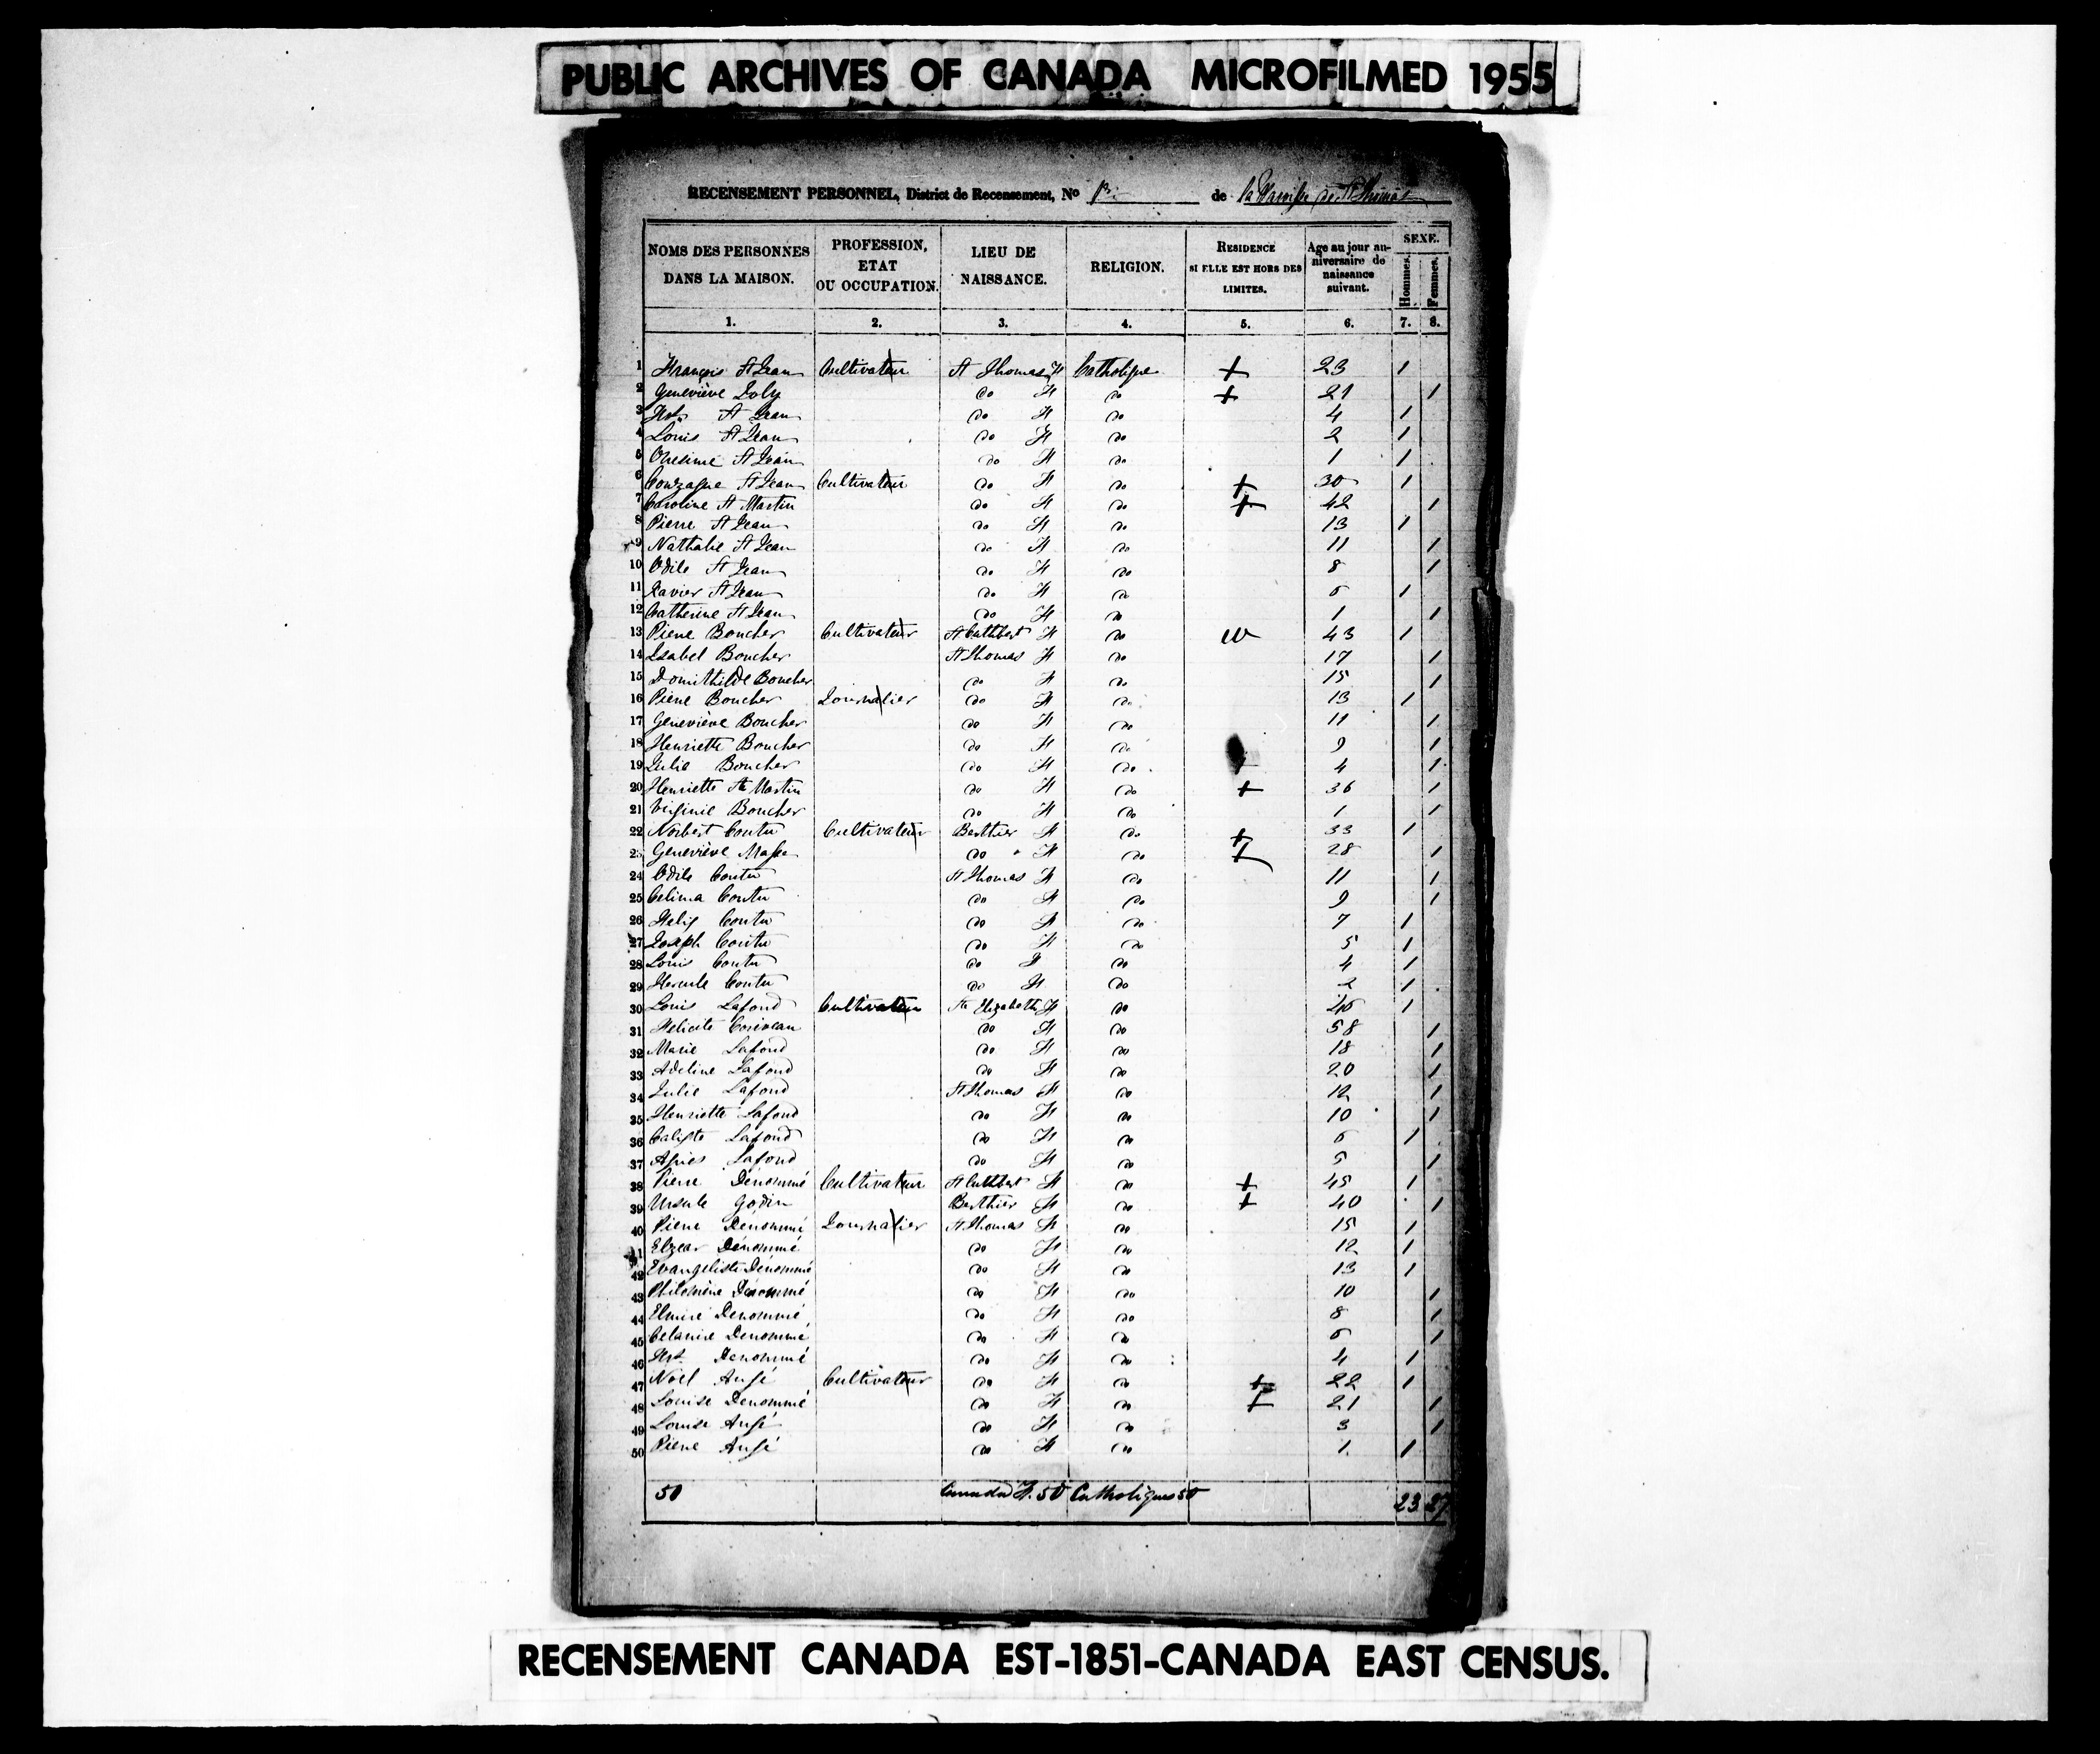 PUBLIC ARCHIVES OF CANADA MICROFILMED 1955
RECENSEMENT PERSONNEL, District de Recensement, No 1er de la Paroisse de St Thomas
NOMS DES PERSONNES DANS LA MAISON. PROFESSION, ETAT OU OCCUPATION. LIEU DE NAISSANCE. RELIGION. RESIDENCE SI ELLE EST HORS DES LIMITES. Age au jour anniversaire de naissance suivant. SEXE. Hommes. Femmes.
1. 2. 3. 4. 5. 6. 7. 8.
1 François St Jean Cultivateur St Thomas F Catholique + 23 1
2 Geneviève Joly do F do + 21 1
3 St Jean do F do 4 1
4 Louis St Jean do F do 2 1
5 Onesime St Jean do F do 1 1
6 Gonzague St Jean Cultivateur do F do + 30 1
7 Caroline St Martin do F do + 42 1
8 Pierre St Jean do F do 13 1
9 Nathalie St Jean do F do 11 1
10 Odile St Jean do F do 8 1
11 Xavier St Jean do F do 6 1
12 Catherine St Jean do F do 1 1
13 Pierre Boucher Cultivateur St Cuthbert F do W 43 1
14 Isabel Boucher St Thomas F do 17 1
15 Domithilde Boucher do F do 15 1
16 Pierre Boucher Journalier do F do 13 1
17 Geneviève Boucher do F do 11 1
18 Henriette Boucher do F do 9 1
19 Julie Boucher do F do 4 1
20 Henriette St Martin do F do + 36 1
21 Virginie Boucher do F do 1 1
22 Norbert Coutu Cultivateur Berthier F do + 33 1
23 Geneviève Masse do F do + 28 1
24 Odile Coutu St Thomas F do 11 1
25 Celima Coutu do F do 9 1
26 Felix Coutu do F do 7 1
27 Joseph Coutu do F do 5 1
28 Louis Coutu do F do 4 1
29 Hercule Coutu do F do 2 1
30 Louis Lafond Cultivateur Ste Elizabeth F do 1
31 Felicité do F do 58 1
32 Marie Lafond do F do 18 1
33 Adeline Lafond do F do 20 1
34 Julie Lafond St Thomas F do 12 1
35 Henriette Lafond do F do 10 1
36 Calixte Lafond do F do 6 1
37 Agnes Lafond do F do 5 1
38 Pierre Dénommé Cultivateur St Cuthbert F do + 45 1
39 Ursule Godin Berthier F do + 40 1
40 Pierre Dénommé Journalier St Thomas F do 15 1
41 Elzear Dénommé do F do 12 1
42 Evangeliste Dénommé do F do 13 1
43 Philomène Dénommé do F do 10 1
44 Elmire Denommé do F do 8 1
45 Celanire Denommé do F do 6 1
46 Denommé do F do 4 1
47 Noël Augé Cultivateur do F do + 22 1
48 Louise Denommé do F do + 21 1
49 Louise Augé do F do 3 1
50 Pierre Augé do F do 1 1
50 Canada F. 50 Catholiques 50 23 27
RECENSEMENT CANADA EST-1851-CANADA EAST CENSUS.